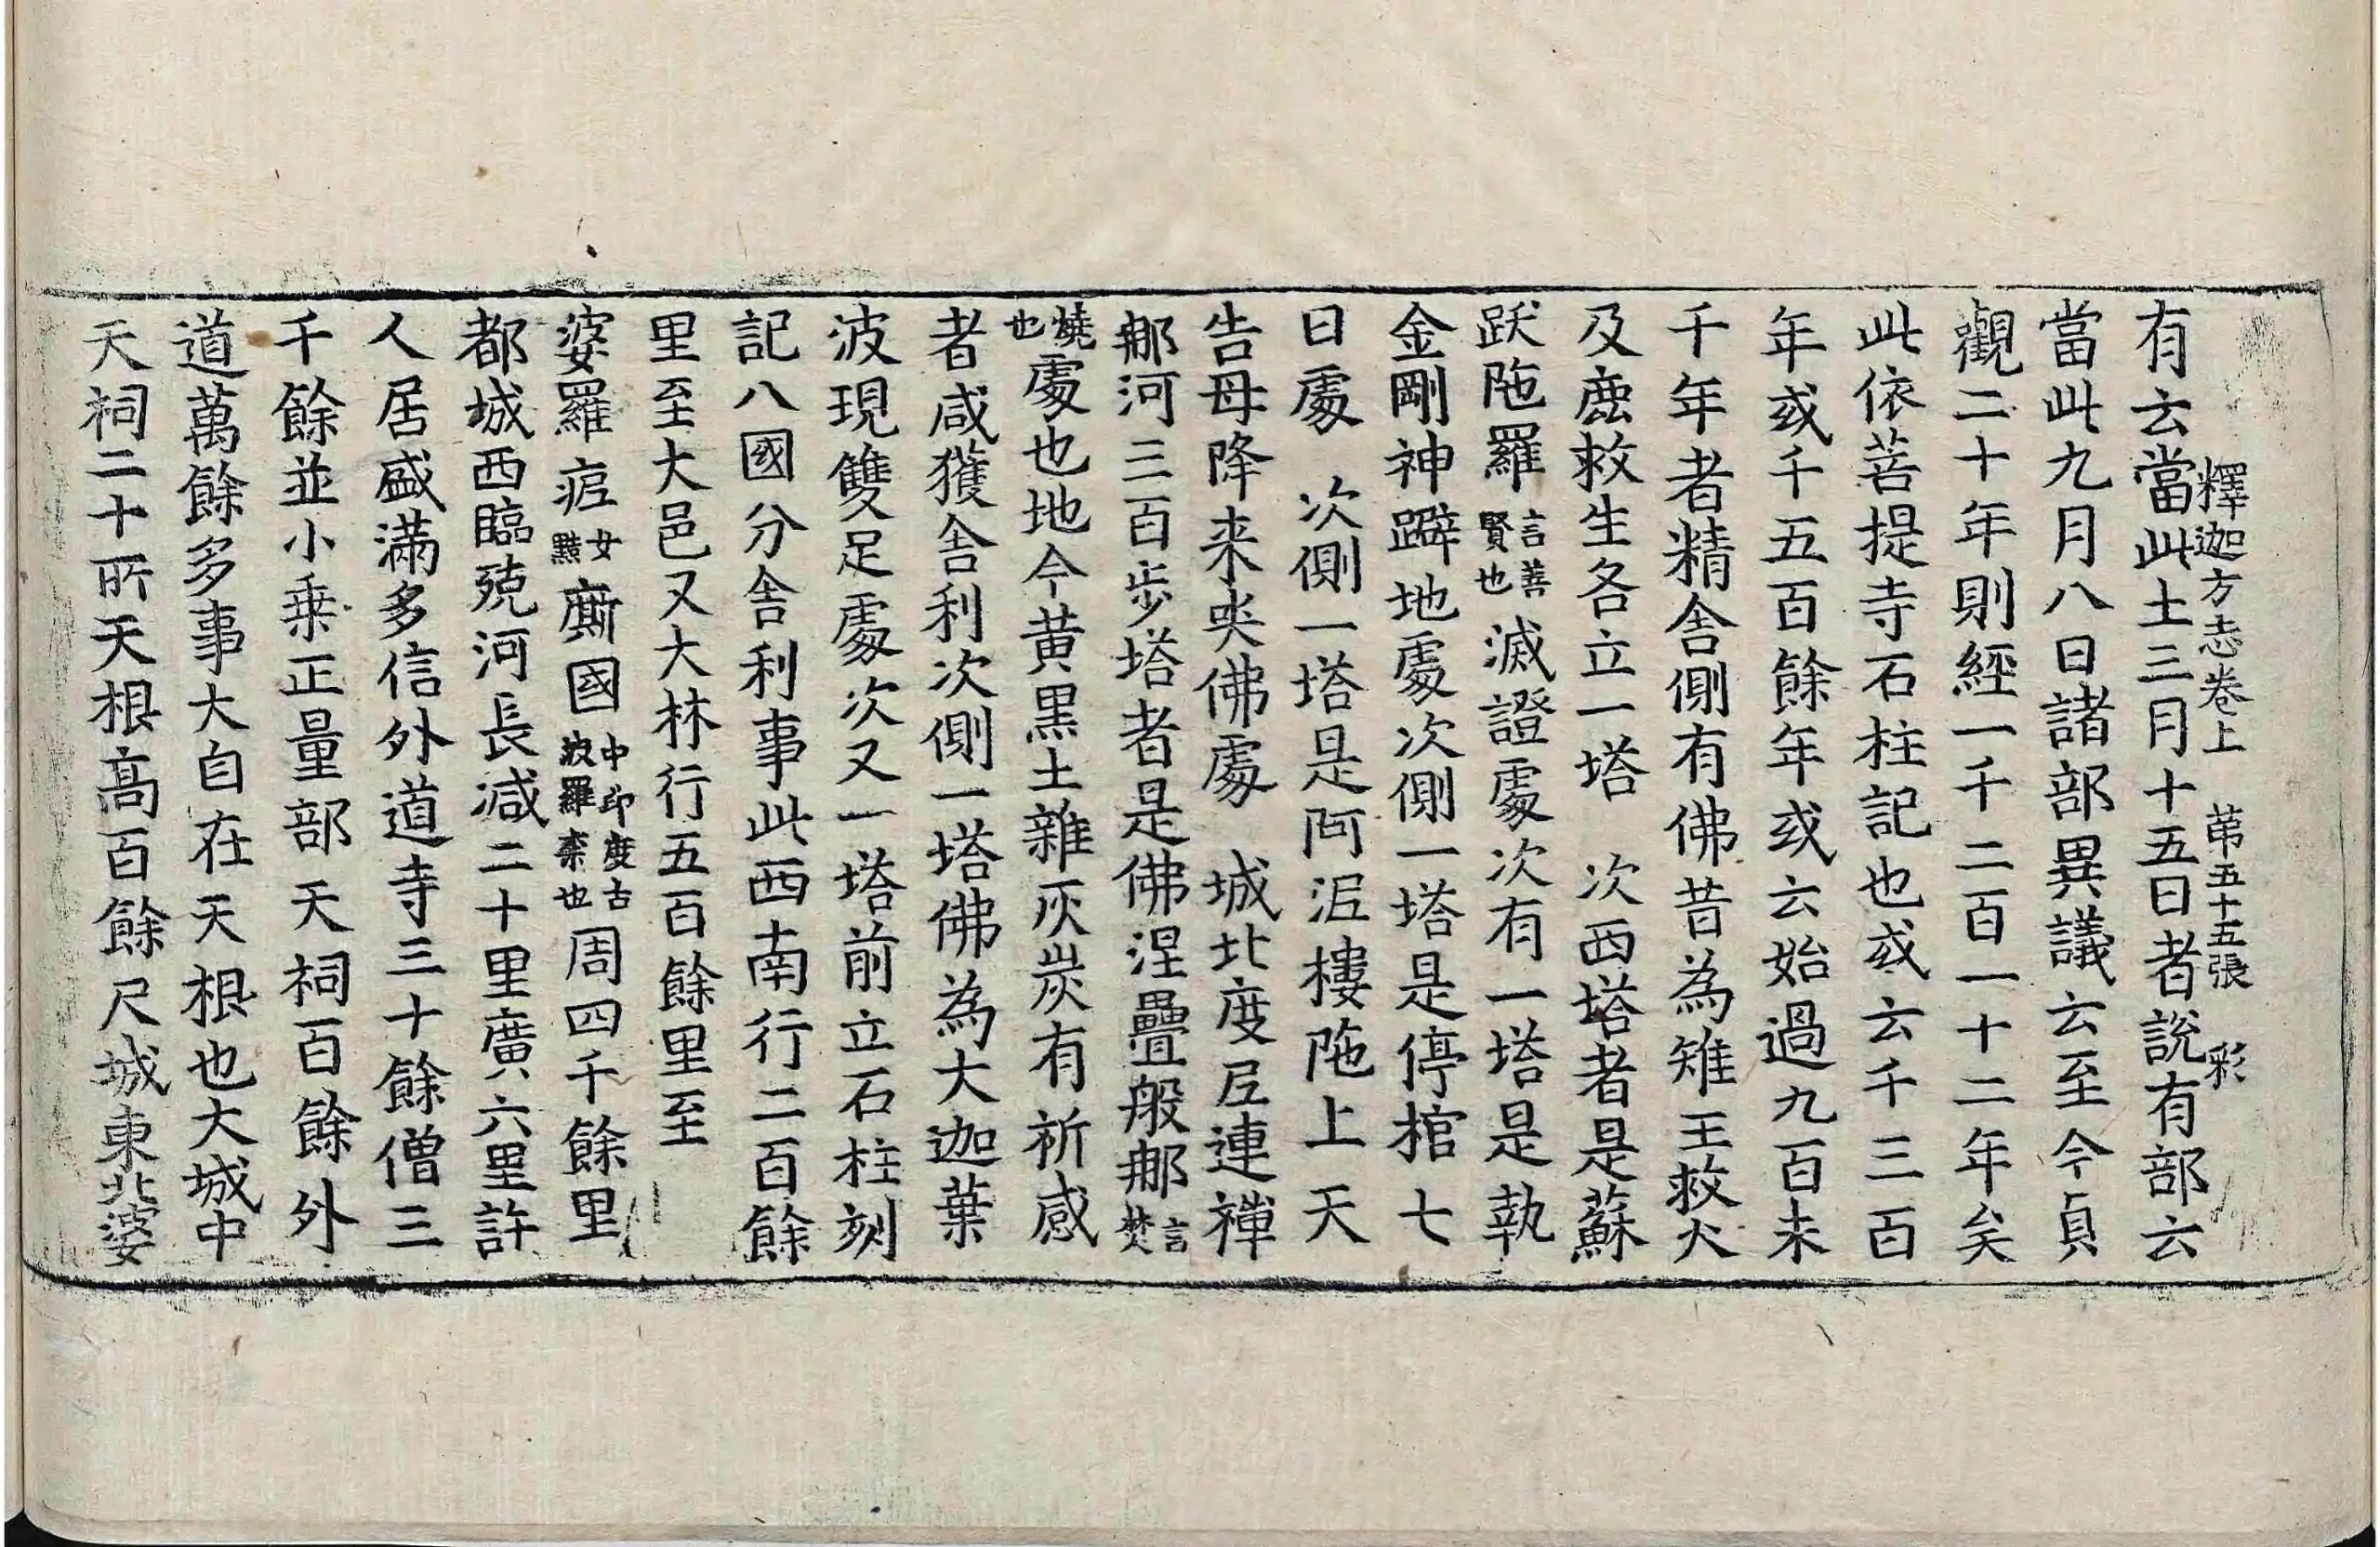 釋迦方志卷上 苐五十五張 彩
有云當此土三月十五日者說有部云
當此九月八日諸部異議云至今貞
觀二十年則經一千二百一十二年矣
此依菩提寺石柱記也或云千三百
年或千五百餘年或云始過九百未
千年者精舍側有佛昔為雉王救火
及鹿救生各立一塔 次西塔者是蘇
跃陁羅言善賢也滅證處次有一塔是執
金剛神躃地處次側一塔是停棺七
日處 次側一塔是阿泥樓陁上天
告母降来哭佛處 城北度尼連禪
那河三百步塔者是佛涅疊般那言焚
燒也處也地今黄黒土雜灰炭有祈感
者咸獲舍利次側一塔佛為大迦葉
波現雙足處次又一塔前立石柱刻
記八國分舍利事此西南行二百餘
里至大邑又大林行五百餘里至
婆羅痆女黠廝國中印度古波羅柰也周四千餘里
都城西臨殑河長減二十里廣六里許
人居盛滿多信外道寺三十餘僧三
千餘並小乗正量部天祠百餘外
道萬餘多事大自在天根也大城中
天祠二十所天根高百餘尺城東北婆